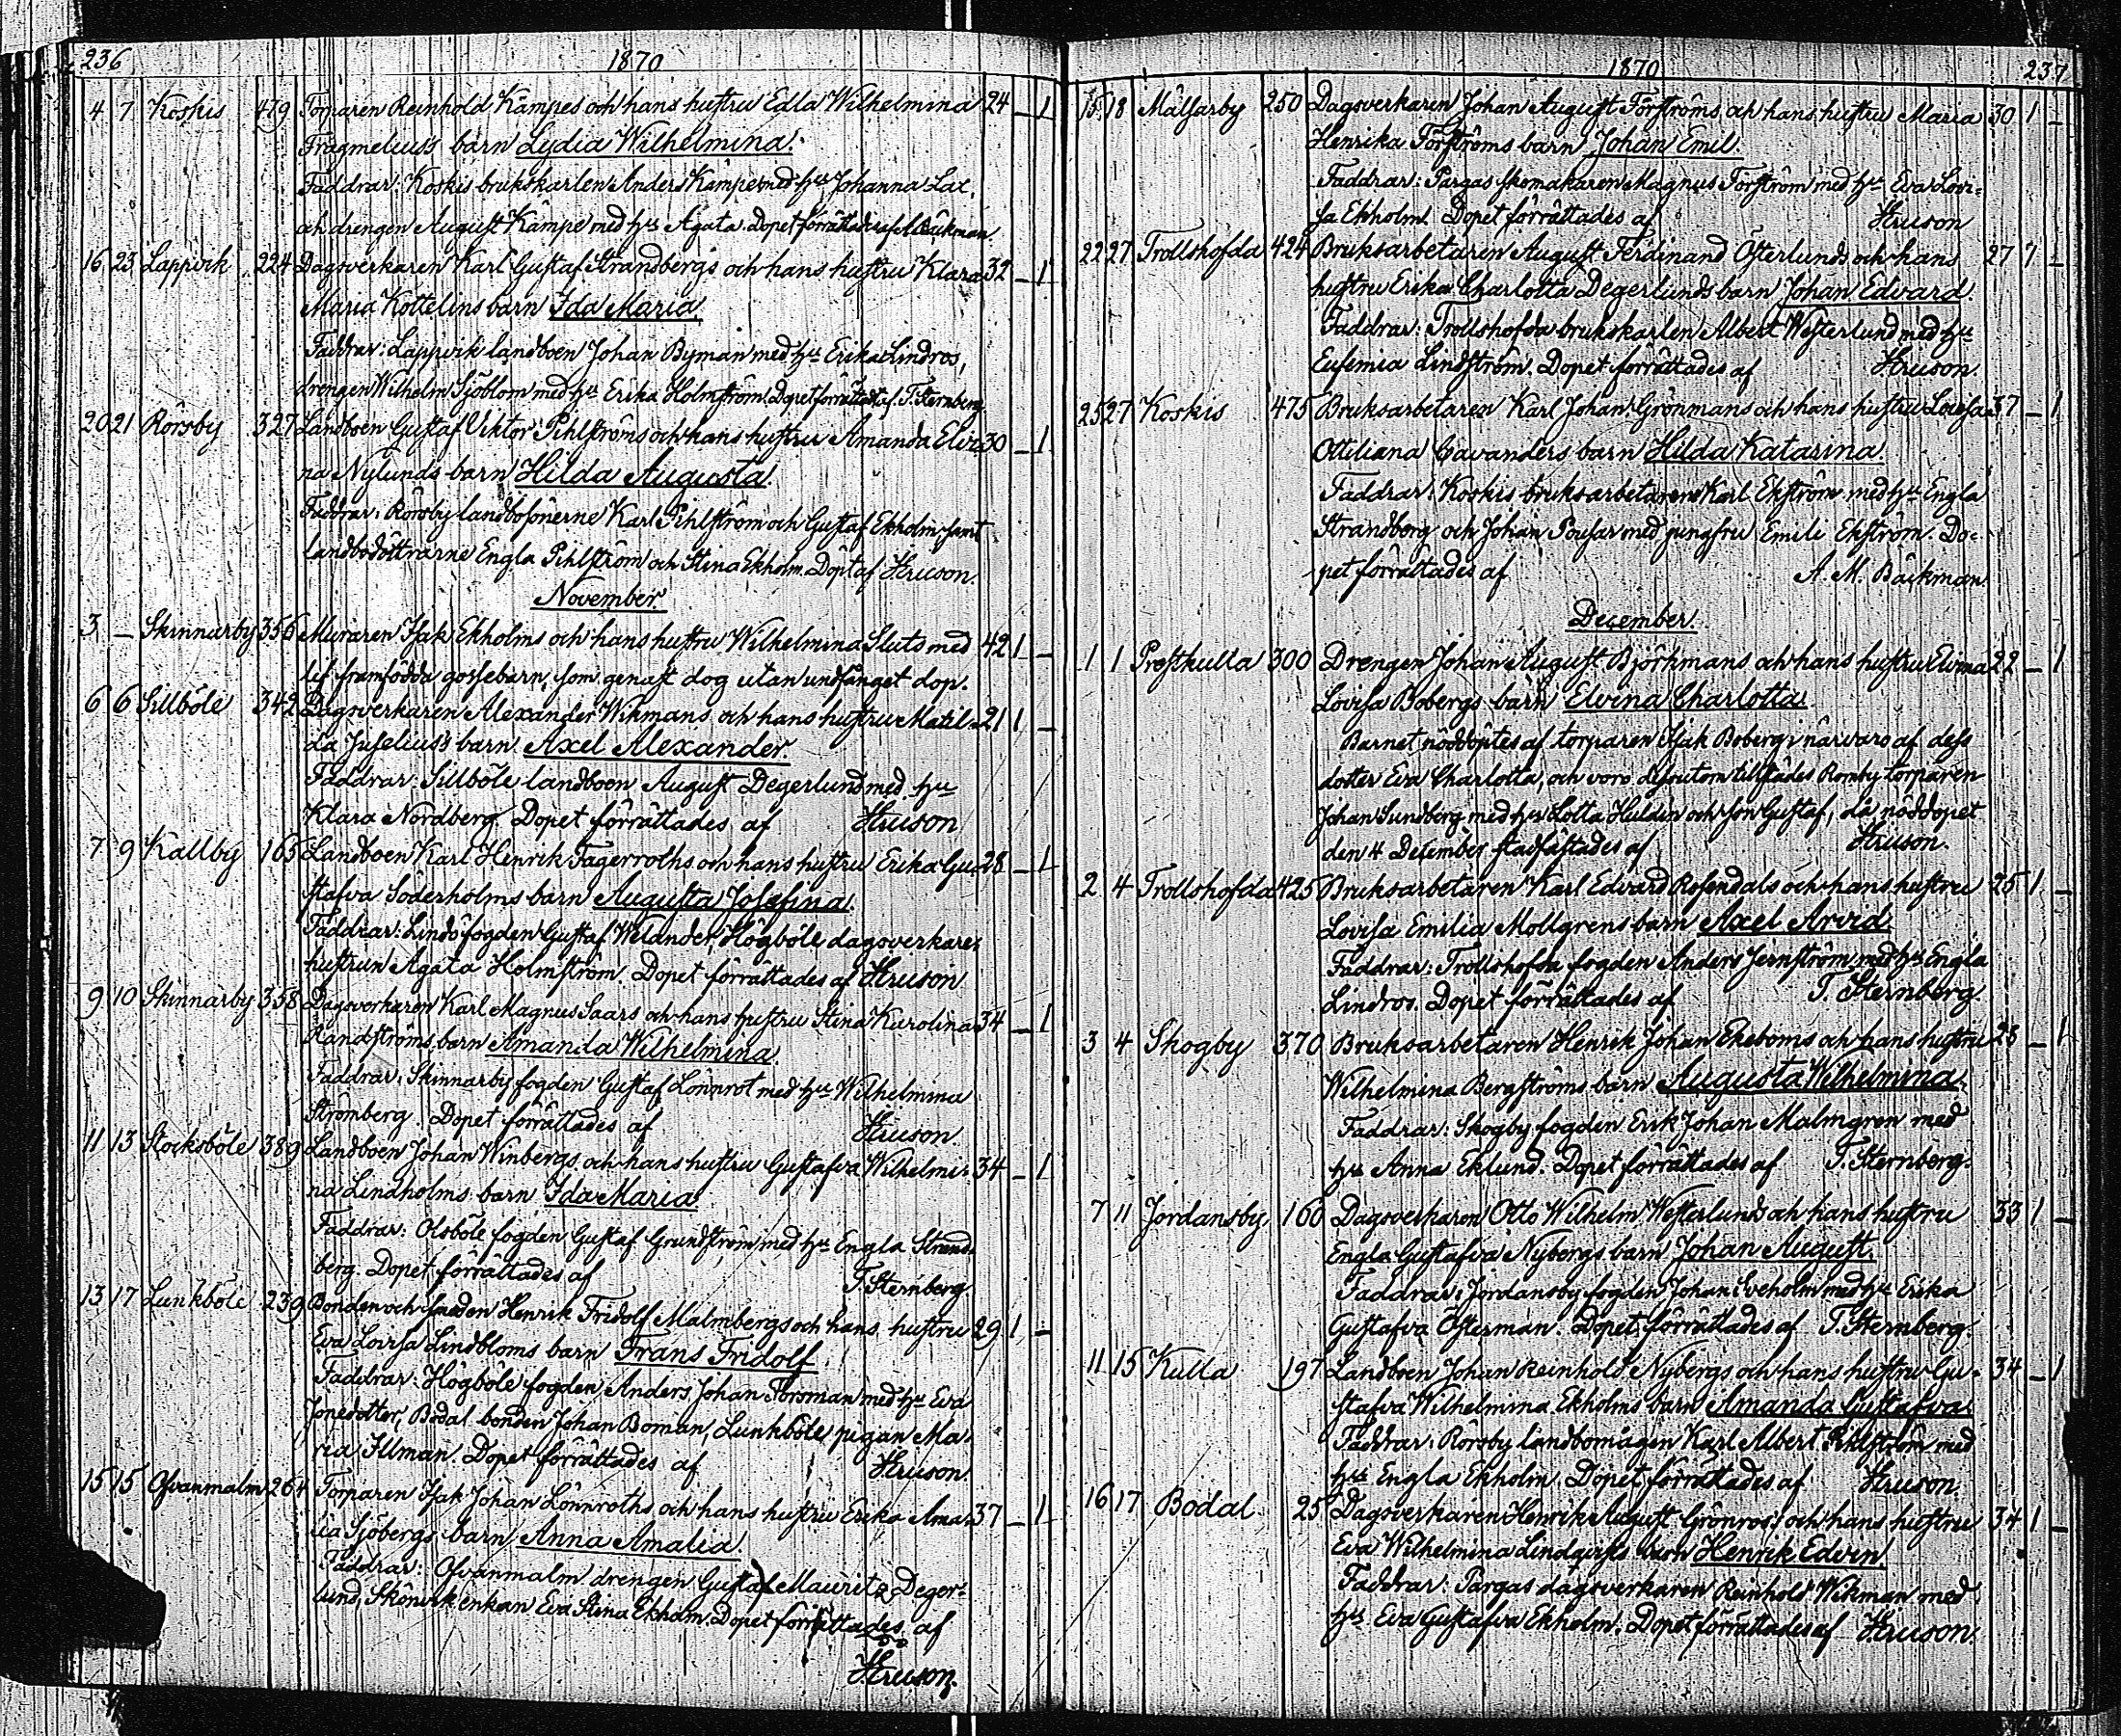 236 1870
4 7 Koskis 479 Torparen Reinhold Kämpes och hans hustru Edla Wilhelmina 24 – 1
Fragmelius's barn Lydia Wilhelmina.
Faddrar: Koskis brukskarlen Anders Kämpe med h:u Johanna
och drengen August Kämpe med h:u Agata. Dopet förrättades af A Bäckman.
16 23 Lappvik 224 Dagsverkaren Karl Gustaf Strandbergs och hans hustru Klara 32 – 1
Maria Kottelins barn Ida Maria.
Faddrar: Lappvik landboen Johan Byman med h:u Erika Lindros,
drengen Wilhelm Sjöblom med h:u Erika Holmström. Dopet förrättad af T. Sternberg.
20 21 Rörsby 327 Landboen Gustaf Viktor Pihlströms och hans hustru Amanda Elvi- 30 – 1
na Nylunds barn Hilda Augusta.
Faddrar: Rörsby landbosönerne Karl Pihlström och Gustaf Ekholm samt
landbodöttrarne Engla Pihlström och Stina Ekholm. Döpt af Heurson.
November.
3 – Skinnarby 356 Muraren Isak Ekholms och hans hustru Wilhelmina Sluts med 42 1 –
lif framfödda gossebarn, som genast dog utan undfånget dop.
6 6 Sillböle 342 Dagsverkaren Alexander Wikmans och hans hustru Matil- 21 1 –
da Juselius's barn Axel Alexander.
Faddrar: Sillböle landboen August Degerlund med h:u
Klara Nordberg. Dopet förrättades af
7 9 Källby 165 Landboen Karl Henrik Fagerroths och hans hustru Erika Gu- 28 – 1
stafva Söderholms barn Augusta Josefina.
Faddrar: Lindö fogden Gustaf Welander, Högböle dagsverkare-
hustrun Agata Holmström. Dopet förrättades af
9 10 Skinnarby 358 Dagsverkaren Karl Magnus Saars och hans hustru Stina Karolina 34 – 1
Randströms barn Amanda Wilhelmina.
Faddrar: Skinnarby fogden Gustaf Lönnrot med h:u Wilhelmina
Strömberg. Dopet förrättades af
11 13 Stocksböle 389 Landboen Johan Winbergs och hans hustru Gustafva Wilhelmi- 34 – 1
na Lindholms barn Ida Maria.
Faddrar: Olsböle fogden Gustaf Grundström med h:u Engla Strand-
berg. Dopet förrättades af T. Sternberg.
13 17 Lunkböle 239 Bonden och Henrik Fridolf Malmbergs och hans hustru 29 1 –
Eva Lovisa Lindbloms barn Frans Fridolf.
Faddrar: Högböle fogden Anders Johan Forsman med h:u Eva
Jonedotter, Bodal bonden Johan Boman, Lunkböle pigan Ma-
ria Illman. Dopet förrättades af
15 15 Ofvanmalm 264 Torparen Isak Johan Lönnroths och hans hustru Erika Ama- 37 – 1
lia Sjöbergs barn Anna Amalia.
Faddrar: Ofvanmalm drengen Gustaf Mauritz Deger-
lund, enkan Eva Stina Ekholm. Dopet förrättades af

1870 237
15 18 Mälsarby 250 Dagsverkaren Johan August Forströms och hans hustru Maria 30 1 –
Henrika Forströms barn Johan Emil.
Faddrar: Pargas skomakaren Magnus Forström med h:u Eva Lovi-
sa Ekholm. Dopet förrättades af
22 27 Trollshofda 424 Bruksarbetaren August Ferdinand Österlunds och hans 27 1 –
hustru Erika Charlotta Degerlunds barn Johan Edvard.
Faddrar: Trollshofda brukskarlen Albert Westerlund med h:u
Eufemia Lindström. Dopet förrättades af
25 27 Koskis 475 Bruksarbetaren Karl Johan Grönmans och hans hustru Lovisa 37 – 1
Ottiliana Cavanders barn Hilda Katarina.
Faddrar: Koskis bruksarbetarene Karl Ekström med h:u Engla
Strandberg och Johan med jungfru Emili Ekström. Do-
pet förrättades af A. M. Bäckman.
December.
1 1 Prestkulla 300 Drengen Johan August Björkmans och hans hustru Elvina 22 – 1
Lovisa Bobergs barn Elvina Charlotta.
Barnet nöddöptes af torparen Isak Boberg i närvaro af dess
dotter Eva Charlotta, och voro dessutom tillstädes torparen
Johan Sundberg med h:u Lotta Huldin och son Gustaf, då nöddopet
den 4 December stadfästades af
2 4 Trollshofda 425 Bruksarbetaren Karl Edvard Rosendals och hans hustru 25 1 –
Lovisa Emilia Mollgrens barn Axel Arvid.
Faddrar: Trollshofda fogden Anders Jernström med h:u Engla
Lindros. Dopet förrättades af T. Sternberg.
3 4 Skogby 370 Bruksarbetaren Henrik Johan Ekeboms och hans hustru 28 – 1
Wilhelmina Bergströms barn Augusta Wilhelmina.
Faddrar: Skogby fogden Erik Johan Malmgren med
h:u Anna Eklund. Dopet förrättades af T. Sternberg.
7 11 Jordansby 160 Dagsverkaren Otto Wilhelm Westerlunds och hans hustru 33 1 –
Engla Gustafva Nybergs barn Johan August.
Faddrar: Jordansby fogden Johan med h:u Erika
Gustafva Österman. Dopet förrättades af T. Sternberg.
11 15 Kulla 197 Landboen Johan Reinhold Nybergs och hans hustru Gu- 34 – 1
stafva Wilhelmina Ekholms barn Amanda Gustafva.
Faddrar: Rörsby landbomågen Karl Albert Pihlström med
h:u Engla Ekholm. Dopet förrättades af
16 17 Bodal 25 Dagsverkaren Henrik August Grönros's och hans hustru 34 1 –
Eva Wilhelmina Lindqvists barn Henrik Edvin.
Faddrar: Pargas dagsverkaren Reinhold Wikman med
h:u Eva Gustafva Ekholm. Dopet förrättades af